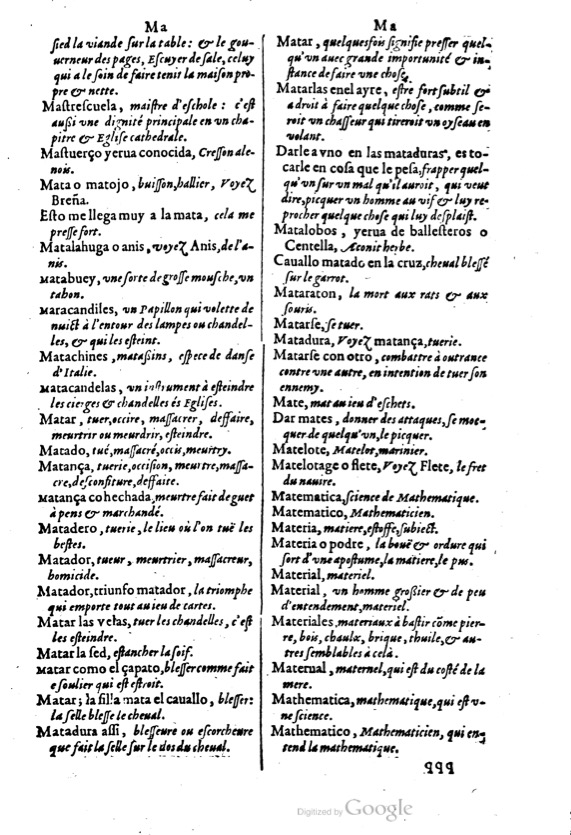 Ma
sied la viande sur la table : & le gou-
uerneur des pages, Escuyer de sale, celuy
qui a le soin de faire tenir la maison pro-
pre & nette.
Mastrescuela, maistre d'eschole : c'est
aussi une dignité principale en un cha-
pitre & Eglise cathedrale.
Mastuerço yerua conocida, Cresson ale-
nois.
Mata o matojo, buisson, hallier, Voyez
Breña.
Esto me llega muy a la mata, cela me
presse fort.
Matalahuga o anis, voyez Anis, de l'a-
nis.
Matabuey, une sorte de grosse mousche, un
tahon.
Maracandiles, un Papillon qui volette de
nuict à l'entour des lampes ou chandel-
les, & qui les esteint.
Matachines, matassins, espece de danse
d'Italie.
Matacandelas, un instrument à esteindre
les cierges & chandelles és Eglises.
Matar, tuer, occire, massacrer, deffaire,
meurtrir ou meurdrir, esteindre.
Matado, tué, massacré, occis, meurtry.
Matança, tuerie, occision, meurtre, massa-
cre, desconfiture, deffaite.
Matança cohechada, meurtre fait de guet
à pens & marchandé.
Matadero, tuerie, le lieu où l'on tuë les
bestes.
Matador, tueur, meurtrier, massacreur,
homicide.
Matador, triunfo matador, la triomphe
qui emporte tout au ieu de cartes.
Matar las velas, tuer les chandelles, c'est
les esteindre.
Matar la sed, estancher la soif.
Matar como el çapato, blesser comme fait
e soulier qui est estroit.
Matar; la silla mata el cauallo, blesser:
la selle blesse le cheual.
Matadura assi, blesseure ou escorcheure
que fait la selle sur le dos du cheual.
Ma
Matar, quelquesfois signifie presser quel-
qu'un auec grande importunité & in-
stance de faire une chose.
Matarlas en el ayre, estre fort subtil &
adroit à faire quelque chose, comme se-
roit un chasseur qui tireroit un oyseau en
volant.
Darle a vno en las mataduras, es to-
carle en cosa que le pesa, frapper quel-
qu'un sur un mal qu'il auroit, qui veut
dire, picquer un homme au vif & luy re-
procher quelque chose qui luy desplaist.
Matalobos, yerua de ballesteros o
Centella, Aconit herbe.
Cauallo matado en la cruz, cheual blessé
sur le garrot.
Mataraton, la mort aux rats & aux
souris.
Matarse, se tuer.
Matadura, Voyez matança, tuerie.
Matarse con otro, combattre à outrance
contre une autre, en intention de tuer son
ennemy.
Mate, mat au ieu d'eschets.
Dar mates, donner des attaques, se moc-
quer de quelqu'un, le picquer.
Matelote, Matelot, marinier.
Matelotage o flete, Voyez Flete, le fret
du nauire.
Matematica, science de Mathematique.
Matematico, Mathematicien.
Materia, matiere, estoffe, subiect.
Materia o podre, la bouë & ordure qui
sort d'une apostume, la matiere, le pus.
Material, materiel.
Material, un homme grossier & de peu
d'entendement, materiel.
Materiales, materiaux à bastir cõme pier-
re, bois, chaulx, brique, thuile, & au-
tres semblables à cela.
Maternal, maternel, qui est du costé de la
mere.
Mathematica, mathematique, qui est v-
ne science.
Mathematico, Mathematicien, qui en-
tend la mathematique.
qqq
Digitized by Google